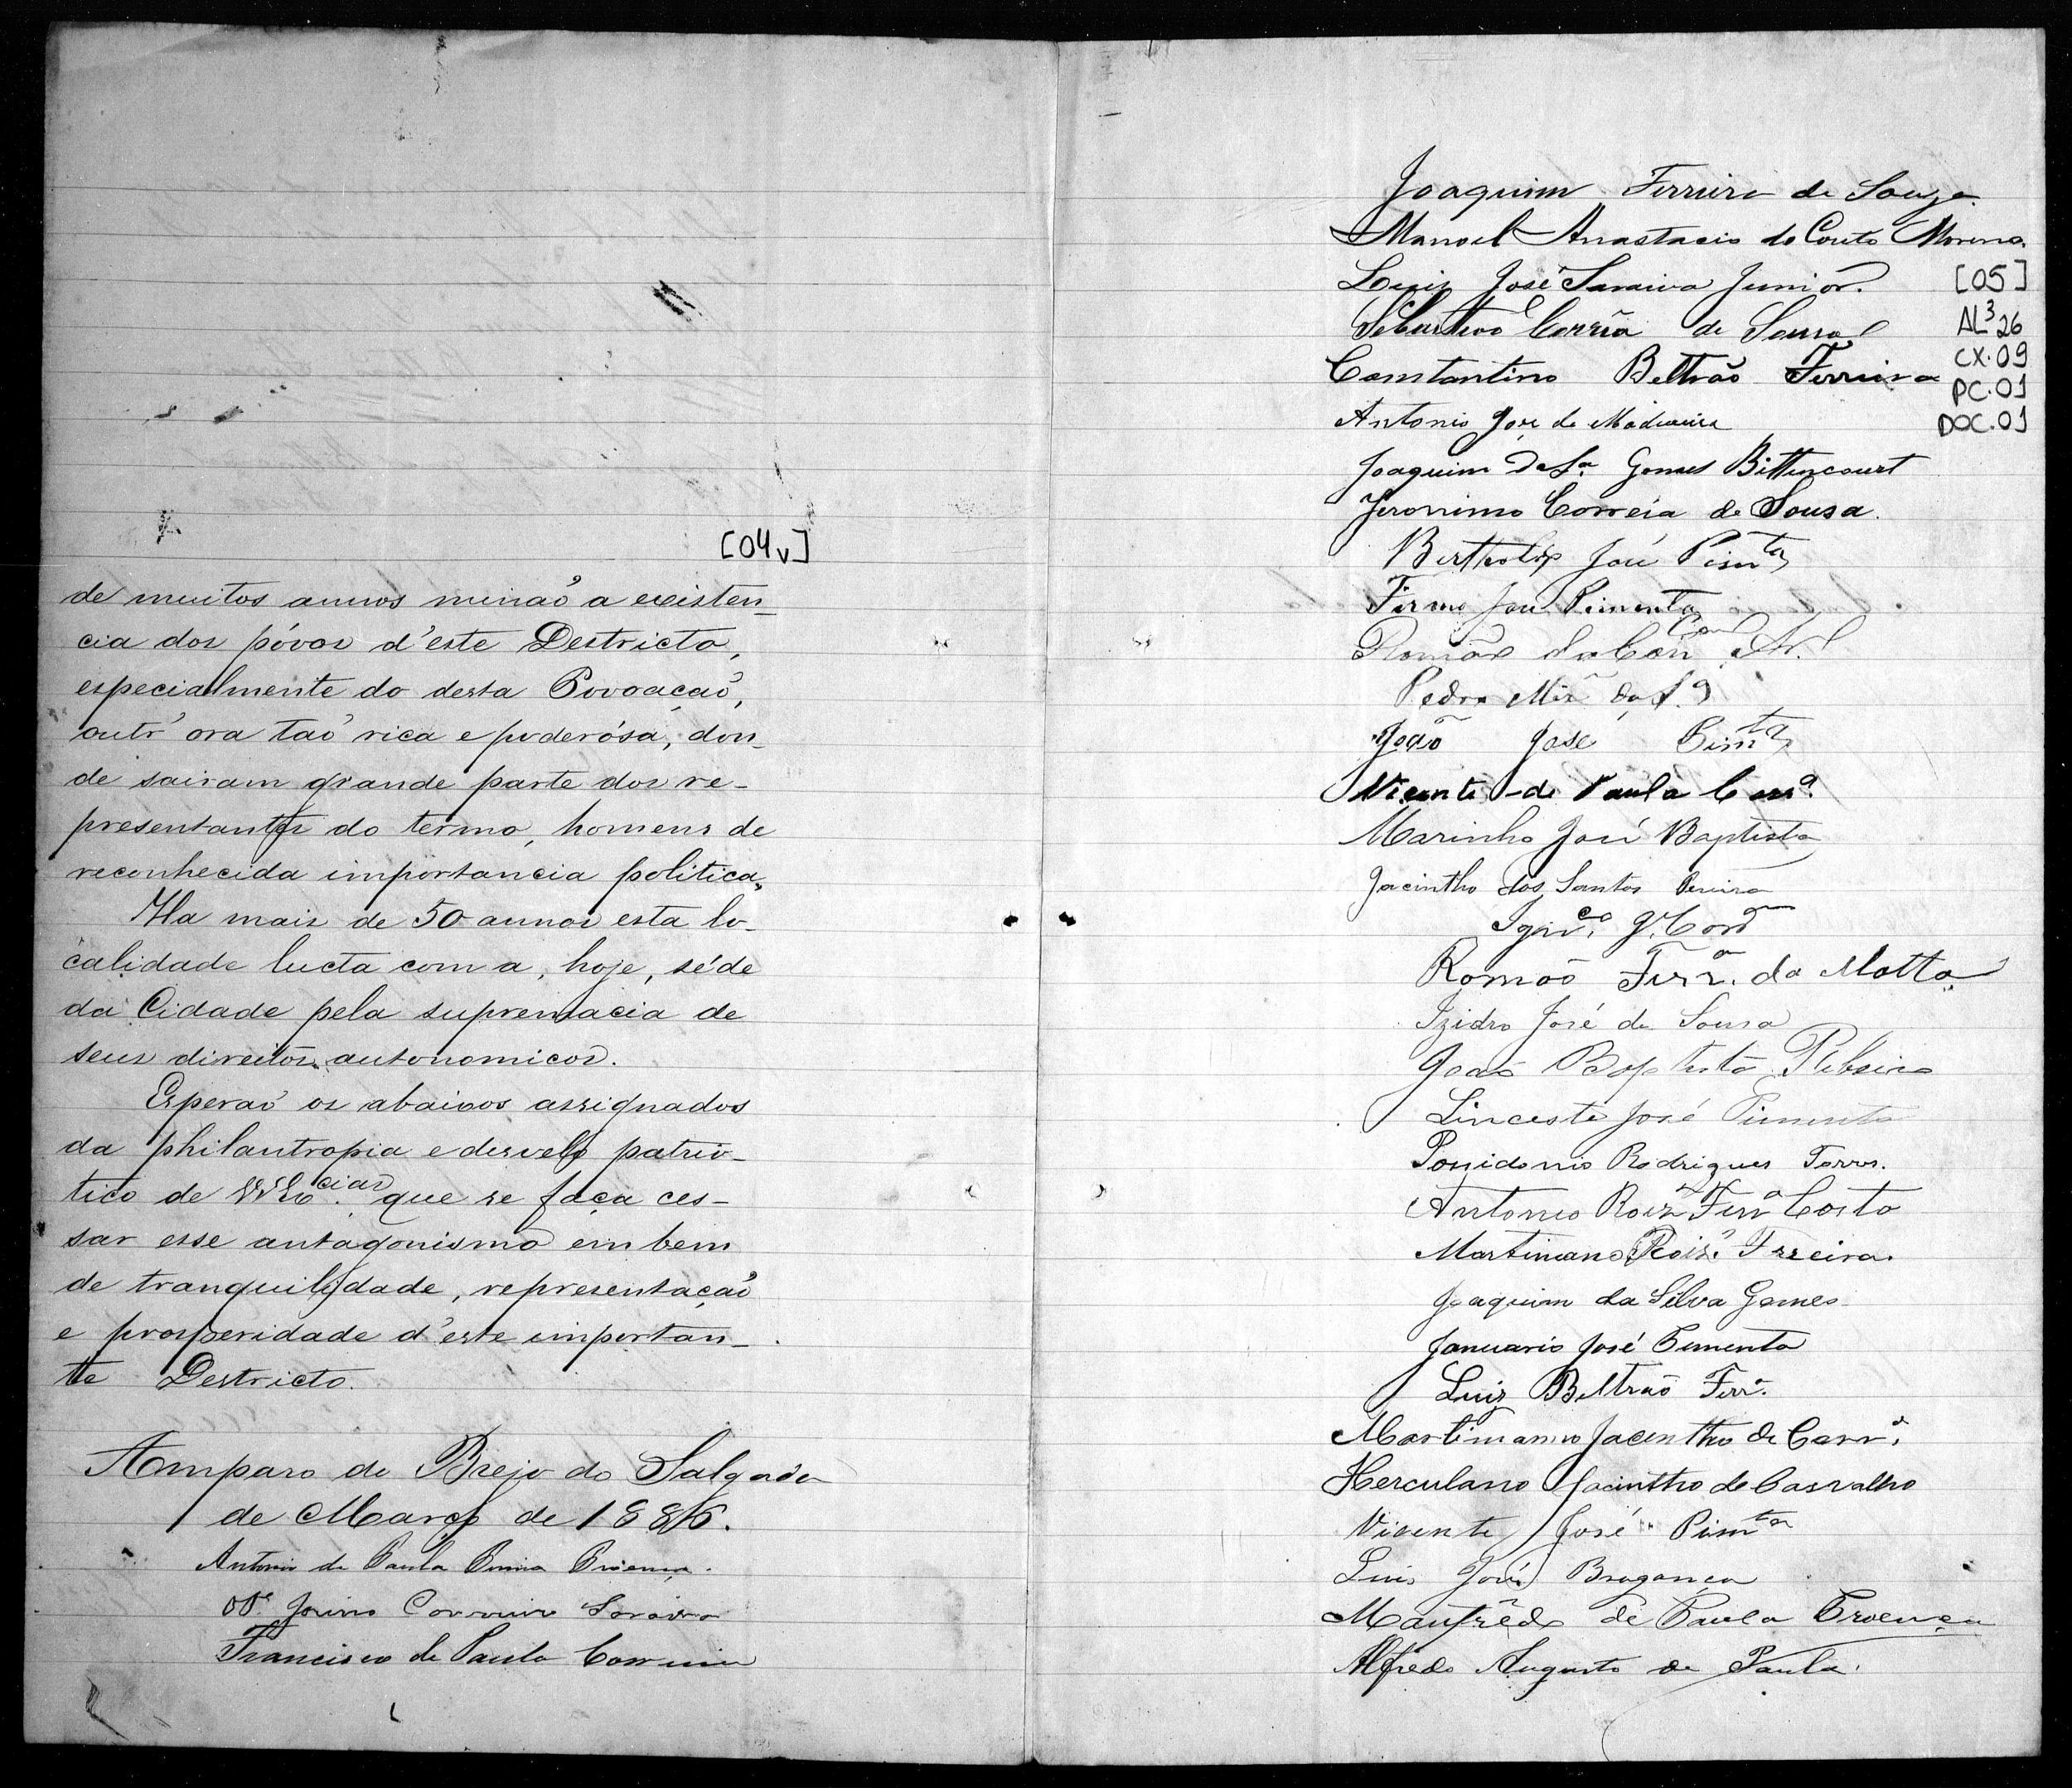 [04v]
de muitos annos minaõ a existen-
cia dos póvos d'este Destricto,
especialmente do desta Povoaçaõ,
outr'ora taõ rica e poderósa, don-
de sairam grande parte dos re-
presentantes do termo, homens de
reconhecida importancia politica.
Ha mais de 50 annos esta lo-
calidade lucta com a, hoje, séde
da Cidade pela supremacia de
seus direitos autonomicos.
Esperaõ os abaixos assignados
da philantropia e desvelo patrio-
tico de VV. que se faça ces-
sar esse antagonismo em bem
de tranquilidade, representaçaõ
e prosperidade d'este importan-
te Destricto.
Amparo do Brejo do Salgado
de Março de 1886.
Antonio de Paula Proença.
Saraiva
Francisco de Paula Correia
Joaquim Ferreira de Souza.
Manoel Anastacio do Couto Moreno.
Luiz José Saraiva Junior.
[05]
Sebastiaõ Corrêa de Sousa
AL³26
Constantino Beltrão Ferreira
CX.09
PC.01
Antonio José de Madureira
DOC.01
Joaquim da Sª Gomes Bittencourt
Jeronimo Correia de Sousa.
José Pimta
Firmo José Pimenta
Romão
Pedro da Sª
João José Pimta
Vicente de Paula
Marinho José Baptista
Jacintho dos Santos Pereira
Romaõ Ferrª da Motta
Izidro José de Sousa
João Baptista Ribeiro
José Pimenta
Possidonio Rodrigues Torres.
Antonio Roiz Ferrª Costa
Martiniano Roiz
Joaquim da Silva Gomes
Januario José Pimenta
Luiz Beltraõ Ferrª.
Martiniano Jacintho de Carvº
Herculano Jacintho de Carvalho
Vicente José Pimta
Luis José Bragança
Manfrêdo de Paula Proença
Alfredo Augusto de Paula.